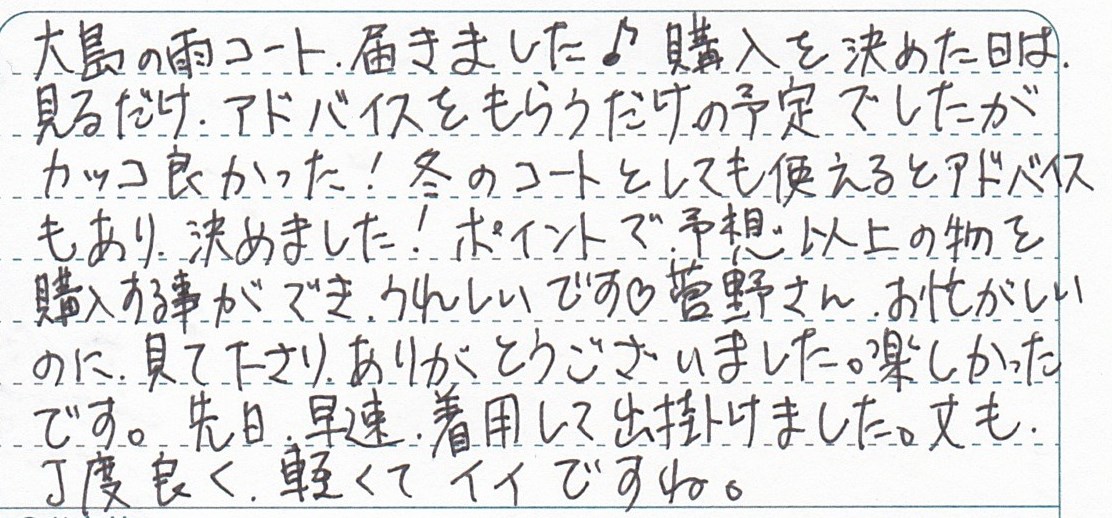 大島の雨コート、届きました♪ 購入を決めた日は、
見るだけ、アドバイスをもらうだけの予定でしたが
カッコ良かった！冬のコートとしても使えるとアドバイス
もあり、決めました！ポイントで、予想以上の物を
購入する事ができ、うれしいです♡菅野さん、お忙がしい
のに、見て下さり、ありがとうございました。楽しかった
です。先日、早速、着用して出掛けました。丈も、
丁度良く、軽くてイイですね。